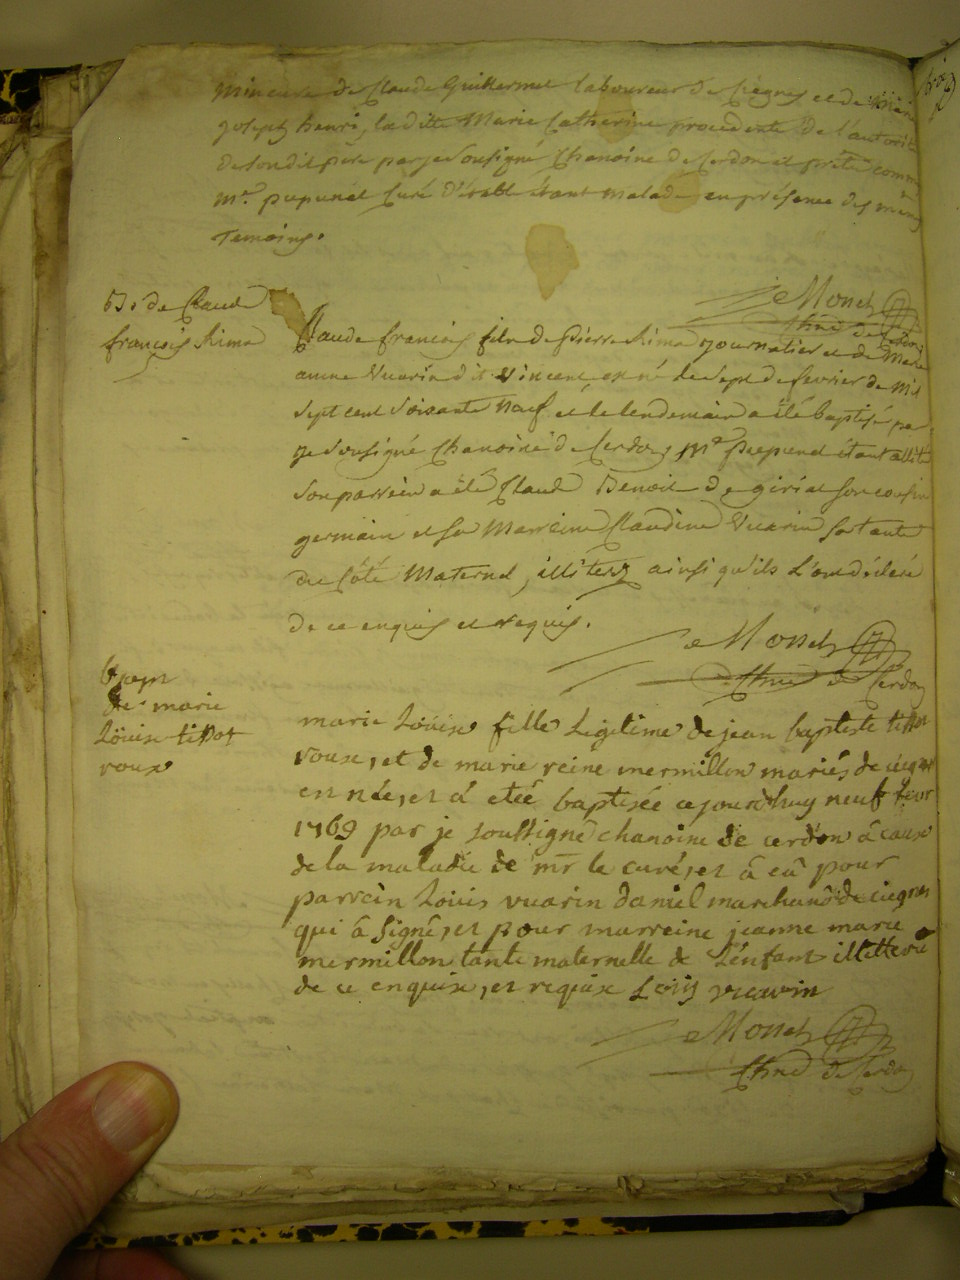 mineure de Claude Guillermet laboureur de Ciegnes et de
joseph henri, la ditte Marie Catherine procedente de l'autorité
de son dit pere par je soussigné Chanoine de Cerdon et prêtre comm
Mr. pupunet Curé étant Malade en présence des mêmes
Temoins.
De Monet
Chne de Cerdon
B. de Claude
françois Rima
Claude françois fils de Pierre Rima journalier et de Marie
anne Vuarin dit Vincent, est né le sept de fevrier de Mil
sept cent Soixante Neuf et le lendemain a été baptisé par
je Soussigné Chanoine de Cerdon, Mr étant allité
son parrein a été Claude Benoit de giriat son cousin
germain et sa Marreine Claudine Vuarin sa tante
du Côté Maternel, illiterés ainsi qu'ils L'ont déclaré
de ce enquis et requis.
De Monet
Chne de Cerdon
Bapm
de marie
Löuise tissot
roux
marie Löuise fille Legitime de jean baptiste tissot
roux, et de marie reine mermillon mariés de ciegnes
est née, et â etée baptisée ce jourd'huy neuf fevr
1769 par je soussigné chanoine de cerdon â cause
de la maladie de mr le curé, et â eû pour
parrein Löuis vuarin daniel marchand de ciegnes
qui â signé, et pour marreine jeanne marie
mermillon tante maternelle de L'enfant illetteré
de ce enquise, et requise Loüis vuarin
De Monet
Chne de Cerdon